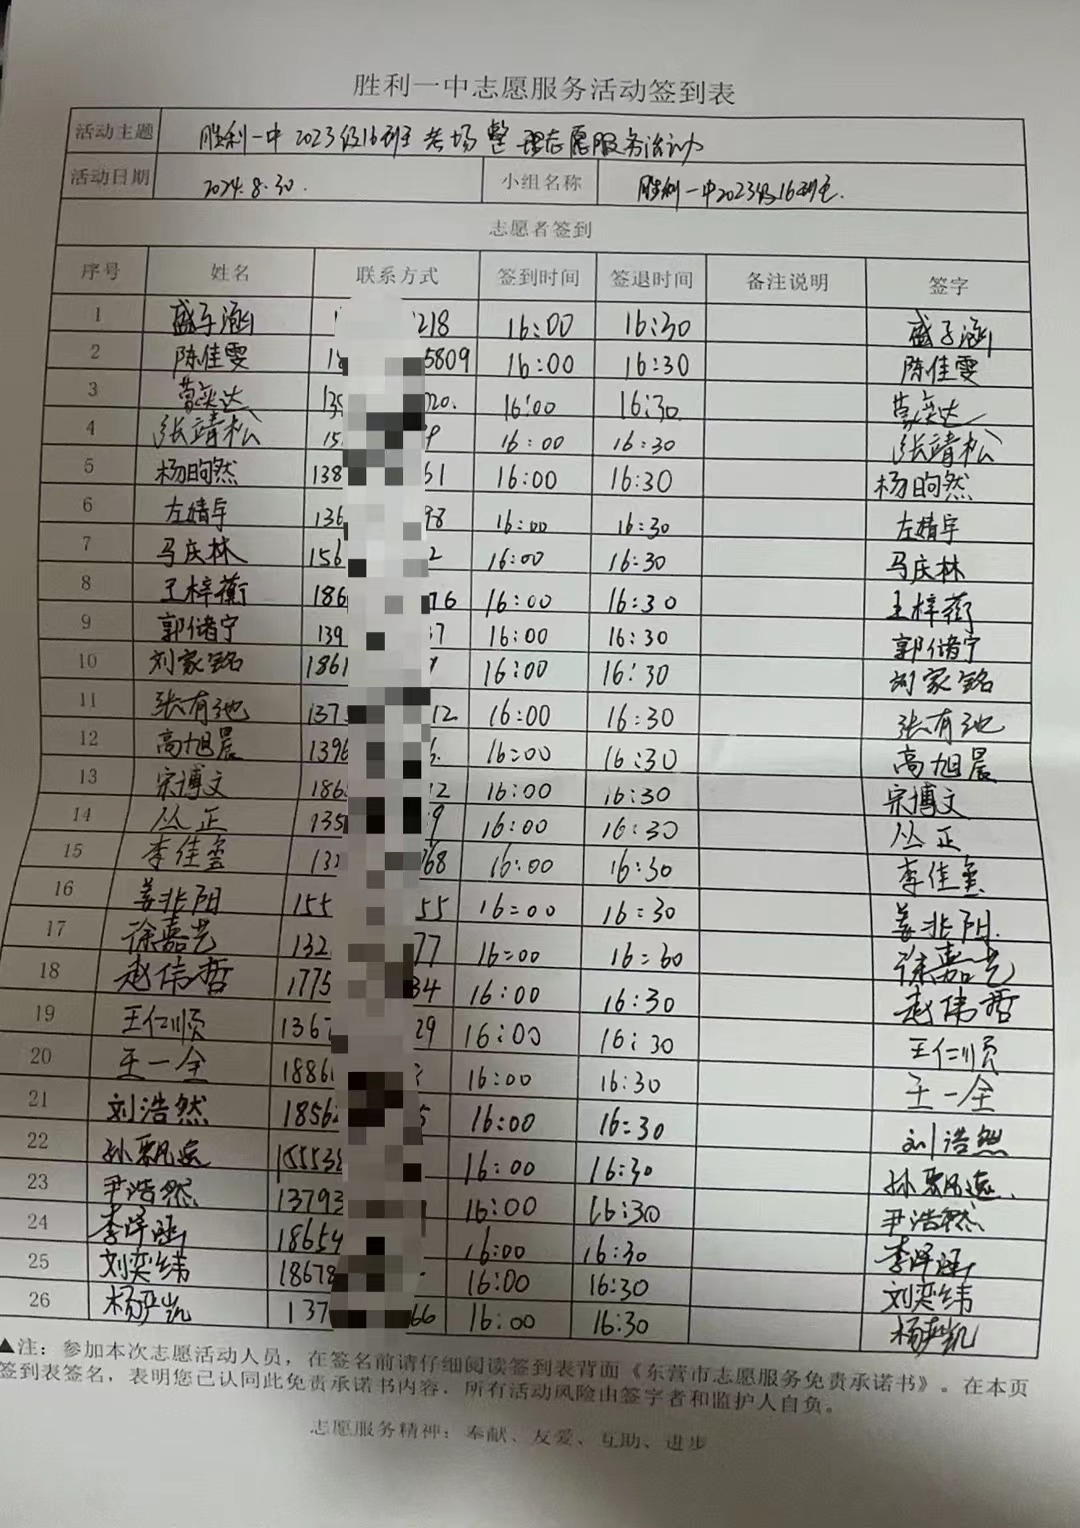 胜利一中志愿服务活动签到表
活动主题 胜利一中2023级16班考场整理志愿服务活动
活动日期 2024.8.30. 小组名称 胜利一中2023级16班.
志愿者签到
序号 姓名 联系方式 签到时间 签退时间 备注说明 签字
1 盛子涵 1 218 16:00 16:30 盛子涵
2 陈佳雯 18 5809 16:00 16:30 陈佳雯
3 奕达 139 20. 16:00 16:30 奕达
4 张靖松 15 9 16:00 16:30 张靖松
5 杨昫然 138 61 16:00 16:30 杨昫然
6 左婧宇 136 98 16:00 16:30 左婧宇
7 马庆林 156 2 16:00 16:30 马庆林
8 王梓蘅 186 76 16:00 16:30 王梓蘅
9 郭储宁 139 37 16:00 16:30 郭储宁
10 刘家铭 1861 9 16:00 16:30 刘家铭
11 张有池 137 12 16:00 16:30 张有池
12 高旭晨 1396 6. 16:00 16:30 高旭晨
13 宋博文 186 12 16:00 16:30 宋博文
14 丛正 135 9 16:00 16:30 丛正
15 李佳玺 132 68 16:00 16:30 李佳玺
16 姜兆阳 155 55 16:00 16:30 姜兆阳.
17 徐嘉艺 132 77 16:00 16:60 徐嘉艺
18 赵伟哲 1775 34 16:00 16:30 赵伟哲
19 王仁顺 1367 29 16:00 16:30 王仁顺
20 王一全 1886 16:00 16:30 王一全
21 刘浩然 1856 5 16:00 16:30 刘浩然
22 孙飘逸 15553 16:00 16:30 孙飘逸.
23 尹浩然 13793 16:00 16:30 尹浩然
24 李泽涵 18654 16:00 16:30 李泽涵
25 刘奕纬 18678 16:00 16:30 刘奕纬
26 杨凯 137 66 16:00 16:30 杨凯
▲注：参加本次志愿活动人员，在签名前请仔细阅读签到表背面《东营市志愿服务免责承诺书》。在本页
签到表签名，表明您已认同此免责承诺书内容，所有活动风险由签字者和监护人自负。
志愿服务精神：奉献、友爱、互助、进步